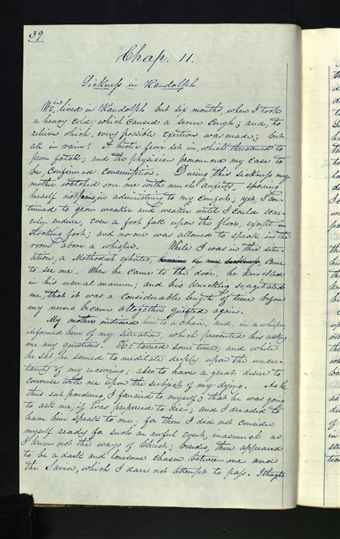 39
Chap. 11.
Sickness in Randolph
We lived in Randolph but six months when I took
a heavy cold, which caused a severe cough; and, to
relieve which, every possible exertion was made; but
all in vain! A hectic fever set in, which threatened to
prove fatal; and the physician pronounced my case to
be confirmed consumption. During this sickness my
mother watched over me with much anxiety, sparing
herself no pains in administering to my comfort; yet I con-
tinued to grow weaker and weaker until I could scar-
cely endure, even a foot fall upon the floor, except in
stocking foot; and no one was allowed to speak in the
room above a whisper. While I was in this situ-
ation, a Methodist exhorter, came
to see me. When he came to the door, he knocked
in his usual manner; and his knocking so agitated
me, that it was a considerable length of time before
my nerves became altogether quieted again.
My mother motioned him to a chair, and, in a whisper,
informed him of my situation; which prevented his asking
me any questions. He tarried some time, and while
he sat he seemed to meditate deeply upon the uncer-
tainty of my recovering; also to have a great desire to
converse with me upon the subject of my dying. As he
thus sat pondering, I fancied to myself, that he was going
to ask me if I was prepared to die; and I dreaded to
have him speak to me; for then I did not consider
myself ready for such an awful event, inasmuch as
I knew not the ways of Christ; besides, there appeared
to be a dark and lonesome chasm between me and
the Savior, which I dare not attempt to pass. I thought